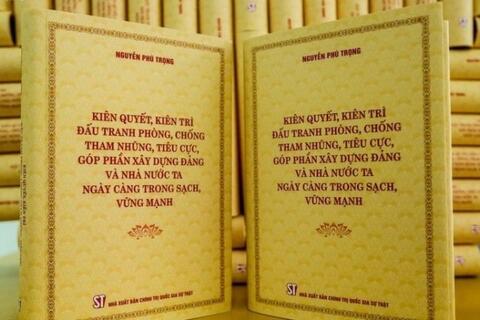 NGUYỄN PHÚ TRỌNG
KIÊN QUYẾT, KIÊN TRÌ
ĐẤU TRANH PHÒNG, CHỐNG
THAM NHŨNG, TIÊU CỰC,
GÓP PHẦN XÂY DỰNG ĐẢNG
VÀ NHÀ NƯỚC TA
NGÀY CÀNG TRONG SẠCH,
VỮNG MẠNH
ST
NHÀ XUẤT BẢN CHÍNH TRỊ QUỐC GIA SỰ THẬT
NGUYỄN PHÚ TRỌNG
KIÊN QUYẾT, KIÊN TRÌ
ĐẤU TRANH PHÒNG, CHỐNG
THAM NHŨNG, TIÊU CỰC,
GÓP PHẦN XÂY DỰNG ĐẢNG
VÀ NHÀ NƯỚC TA
NGÀY CÀNG TRONG SẠCH,
VỮNG MẠNH
ST
NHÀ XUẤT BẢN CHÍNH TRỊ QUỐC GIA SỰ THẬT